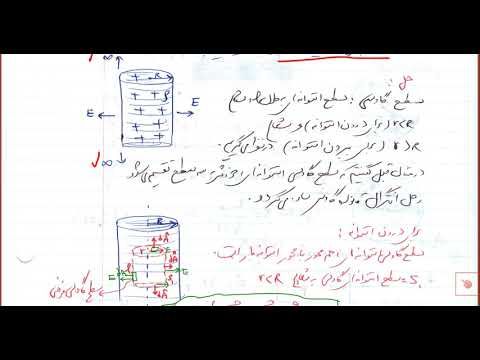 حل:
سطح گاوسی: سطح استوانه‌ای به طول h و شعاع
r<R (برای درون استوانه) و شعاع
r>R (برای بیرون استوانه) در نظر می‌گیریم.
در مثال قبل گفتیم که سطح گاوسی استوانه‌ای را به سه سطح تقسیم می‌شود
و حل انتگرال قانون گاوس ساده می‌گردد.
برای درون استوانه:
سطح گاوسی استوانه‌ای هم محور با محور استوانه است.
S: سطح استوانه‌ای گاوسی به شعاع r<R
∞
R
ρ
E
E
∞
R
سطح گاوسی فرضی